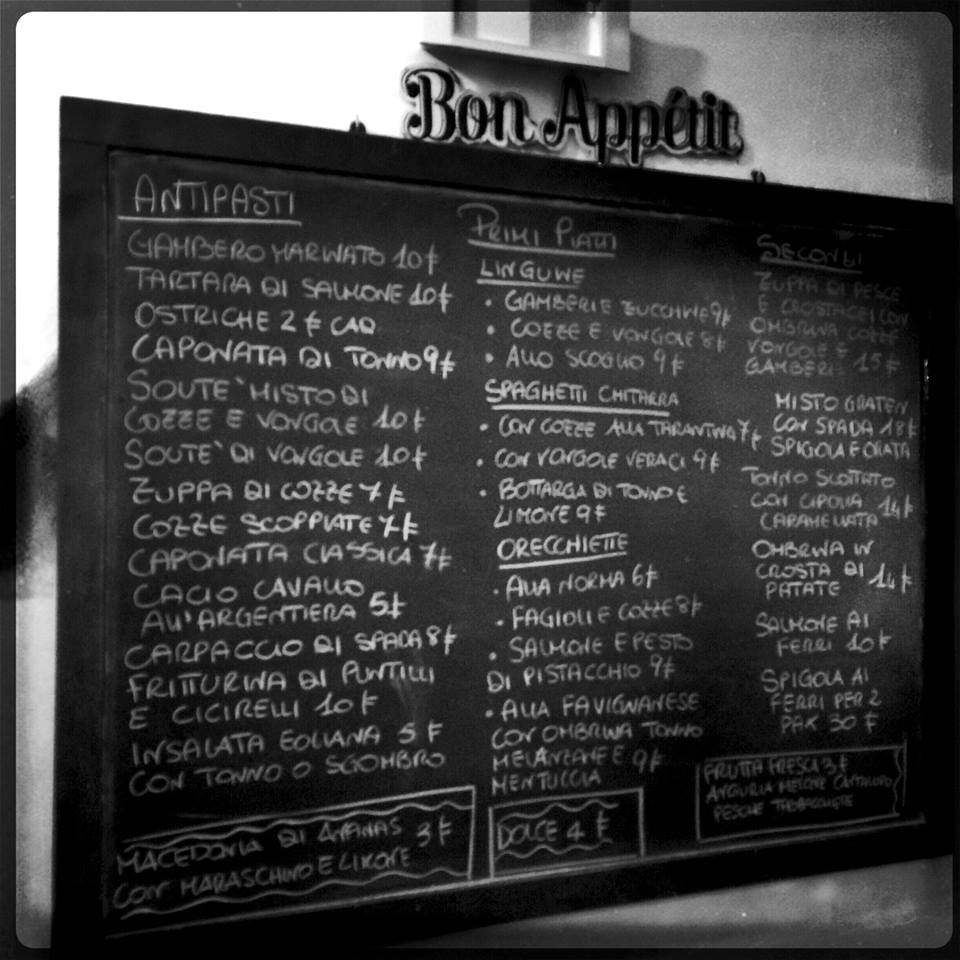 Bon Appétit
ANTIPASTI
GAMBERO MARINATO 10 €
TARTARA DI SALMONE 10 €
OSTRICHE 2 € CAD
CAPONATA DI TONNO 9 €
SOUTE` MISTO DI
COZZE E VONGOLE 10 €
SOUTE` DI VONGOLE 10 €
ZUPPA DI COZZE 7 €
COZZE SCOPPIATE 7 €
CAPONATA CLASSICA 7 €
CACIO CAVALLO
ALL'ARGENTIERA 5 €
CARPACCIO DI SPADA 8 €
FRITTURINA DI PUNTILLI
E CICIRELLI 10 €
INSALATA EOLIANA 5 €
CON TONNO O SGOMBRO
MACEDONIA DI ANANAS 3 €
CON MARASCHINO E LIMONE
PRIMI PIATTI
LINGUINE
• GAMBERI E ZUCCHINE 9 €
• COZZE E VONGOLE 8 €
• ALLO SCOGLIO 9 €
SPAGHETTI CHITARRA
• CON COZZE ALLA TARANTINA 7 €
• CON VONGOLE VERACI 9 €
• BOTTARGA DI TONNO E
LIMONE 9 €
ORECCHIETTE
• ALLA NORMA 6 €
• FAGIOLI E COZZE 8 €
• SALMONE E PESTO
DI PISTACCHIO 9 €
• ALLA FAVIGNANESE
CON OMBRINA TONNO
MELANZANE E 9 €
MENTUCCIA
DOLCE 4 €
SECONDI
ZUPPA DI PESCE
E CROSTACEI CON
OMBRINA COZZE
VONGOLE E
GAMBERI 15 €
MISTO GRATEN
CON SPADA 18 €
SPIGOLA E ORATA
TONNO SCOTTATO
CON CIPOLLA 14 €
CARAMELLATA
OMBRINA IN
CROSTA DI 14 €
PATATE
SALMONE AI
FERRI 10 €
SPIGOLA AI
FERRI PER 2
PAX 30 €
FRUTTA FRESCA 3 €
ANGURIA MELONE CANTALUPO
PESCHE TABACCHIERE